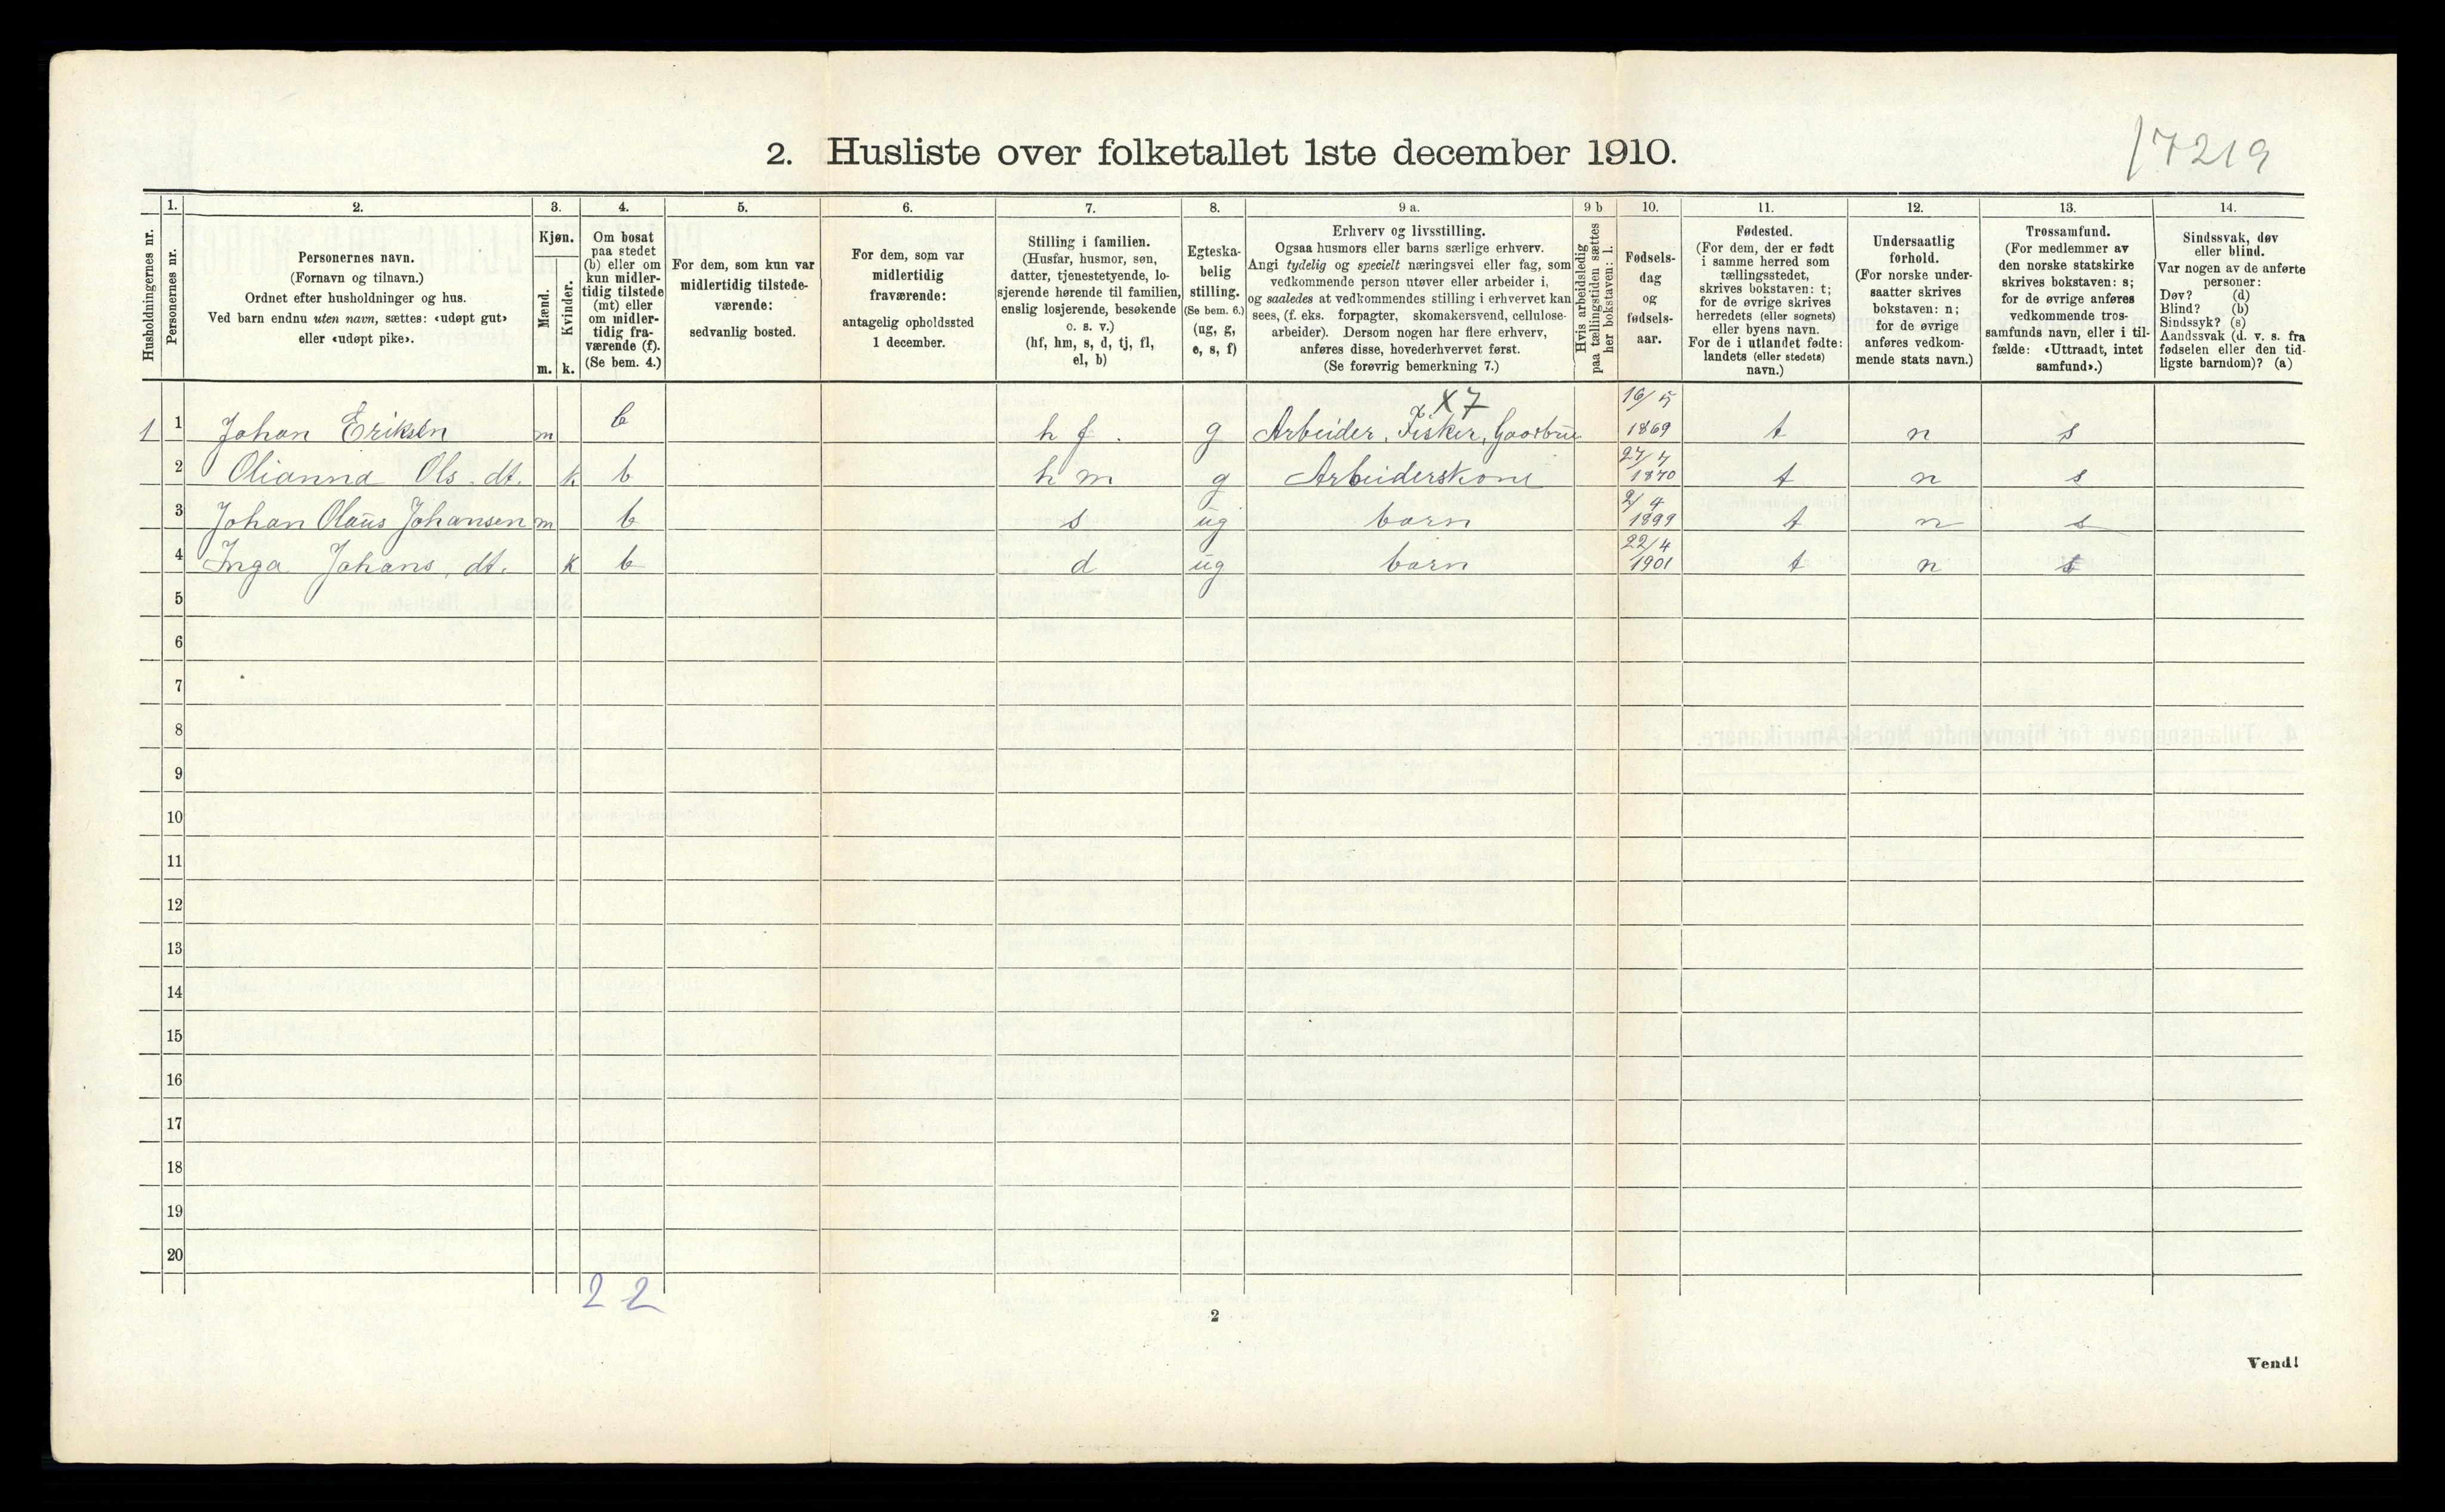 17219
2. Husliste over folketallet 1ste december 1910.
1. 2. 3. 4. 5. 6. 7. 8. 9 a. 9 b 10. 11. 12. 13. 14.
Husholdningernes nr.
Personernes nr.
Personernes navn.
(Fornavn og tilnavn.)
Ordnet efter husholdninger og hus.
Ved barn endnu uten navn, sættes: «udøpt gut»
eller «udøpt pike».
Kjøn.
Mænd.
Kvinder.
m. k.
Om bosat
paa stedet
(b) eller om
kun midler-
tidig tilstede
(mt) eller
om midler-
tidig fra-
værende (f).
(Se bem. 4.)
For dem, som kun var
midlertidig tilstede-
værende:
sedvanlig bosted.
For dem, som var
midlertidig
fraværende:
antagelig opholdssted
1 december.
Stilling i familien.
(Husfar, husmor, søn,
datter, tjenestetyende, lo-
sjerende hørende til familien,
enslig losjerende, besøkende
o. s. v.)
(hf, hm, s, d, tj, fl,
el, b)
Egteska-
belig
stilling.
(Se bem. 6.)
(ug, g,
e, s, f)
Erhverv og livsstilling.
Ogsaa husmors eller barns særlige erhverv.
Angi tydelig og specielt næringsvei eller fag, som
vedkommende person utøver eller arbeider i,
og saaledes at vedkommendes stilling i erhvervet kan
sees, (f. eks. forpagter, skomakersvend, cellulose-
arbeider). Dersom nogen har flere erhverv,
anføres disse, hovederhvervet først.
(Se forøvrig bemerkning 7.)
Hvis arbeidsledig
paa tællingstiden sættes
her bokstaven: l.
Fødsels-
dag
og
fødsels-
aar.
Fødested.
(For dem, der er født
i samme herred som
tællingsstedet,
skrives bokstaven: t;
for de øvrige skrives
herredets (eller sognets)
eller byens navn.
For de i utlandet fødte:
landets (eller stedets)
navn.)
Undersaatlig
forhold.
(For norske under-
saatter skrives
bokstaven: n;
for de øvrige
anføres vedkom-
mende stats navn.)
Trossamfund.
(For medlemmer av
den norske statskirke
skrives bokstaven: s;
for de øvrige anføres
vedkommende tros-
samfunds navn, eller i til-
fælde: «Uttraadt, intet
samfund».)
Sindssvak, døv
eller blind.
Var nogen av de anførte
personer:
Døv? (d)
Blind? (b)
Sindssyk? (s)
Aandssvak (d. v. s. fra
fødselen eller den tid-
ligste barndom)? (a)
x7
1 1 Johan Eriksen m b h f. g Arbeider, Fisker, 16/5 1869 t n s
2 Olianna Ols. dt. k b h m g Arbeiderskone 1870 t n s
3 Johan Olaus Johansen m b s ug barn 2/4 1899 t n s
4 Inga Johans. dt. k b d ug barn 22/4 1901 t n s
5
6
7
8
9
10
11
12
13
14
15
16
17
18
19
20
2 2
2
Vend!